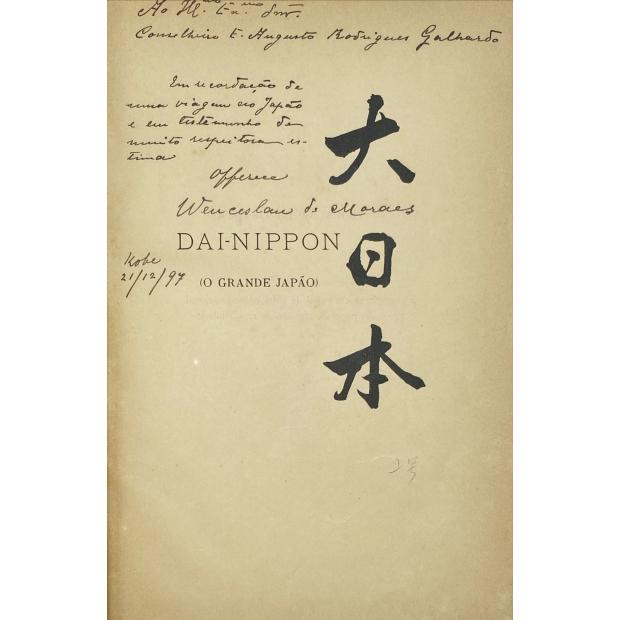 Ao Ill.mo Ex.mo Snr.
Conselheiro E. Augusto Rodrigues Galhardo
Em recordação de
uma viagem ao Japão
e em testemunho de
muito respeitosa es-
tima
Offerece
Wenceslau de Moraes
DAI-NIPPON
Kobe
21/12/97
(O GRANDE JAPÃO)
大日本